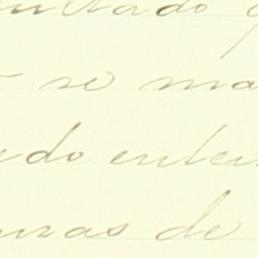 ultado
se ma
do enten
uras de